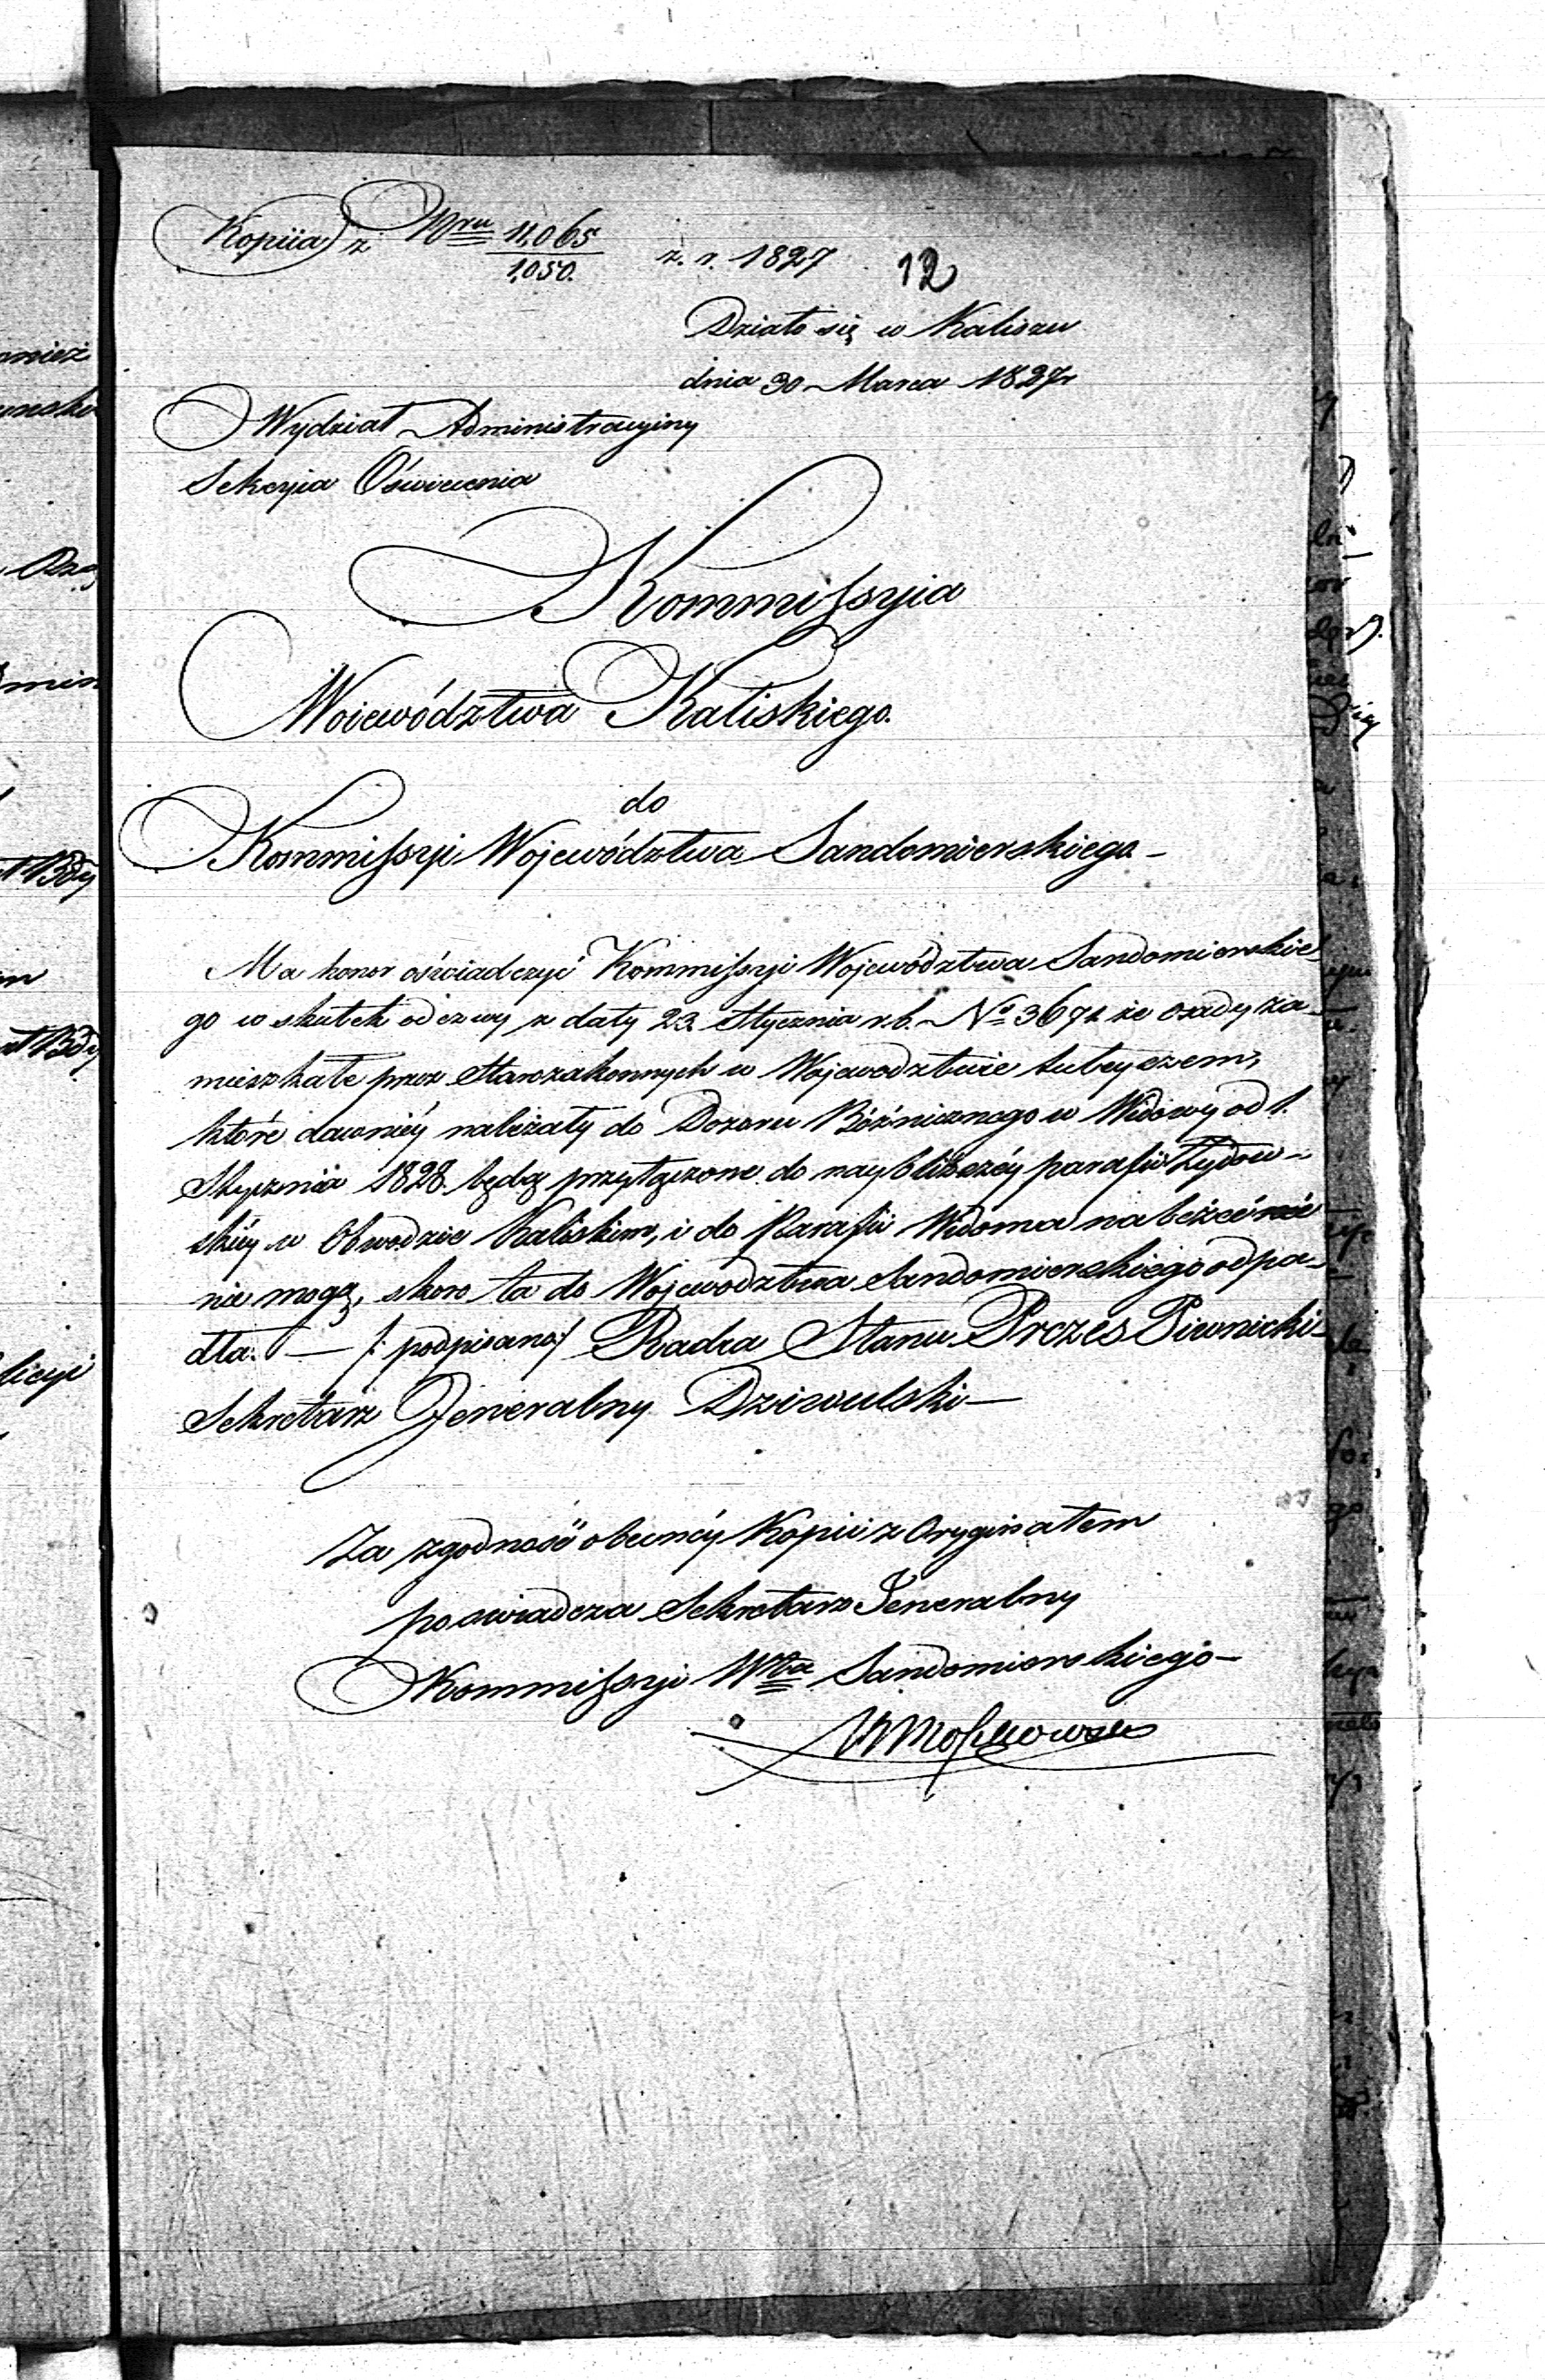 Kopiia z Nru 11,065/1,050. z. r. 1827 12
Działo się w Kaliszu
dnia 30 Marca 1827r
Wydział Administracyiny
Sekcyia Oświecenia
Kommissyia
Woiewództwa Kaliskiego.
do
Kommissyi Województwa Sandomierskiego –
Ma honor oświadczyć Kommissyi Województwa Sandomierskie-
go w skutek odezwy z daty 23 Stycznia r. b. No 3674 że osady za-
mieszkałe przez Starozakonnych w Wojewodztwie tuteyszem,
które dawniéy należały do Dozoru Bóżnicznego w Widawy od 1.
Stycznia 1828 będą przyłączone do naybliższéy parafii Żydow-
skiéy w Obwodzie Kaliskim, i do Parafii Widawa należeć nie
nie mogą, skoro ta do Wojewodztwa Sandomierskiego odpa-
dła. — /: podpisano:/ Radca Stanu Prezes Piwnicki –
Sekretarz Jeneralny Dziwulski —
Za zgodność obecnéy Kopii z Oryginałem
poswiadcza Sekretarz Jeneralny
Kommissyi Wtwa Sandomierskiego –